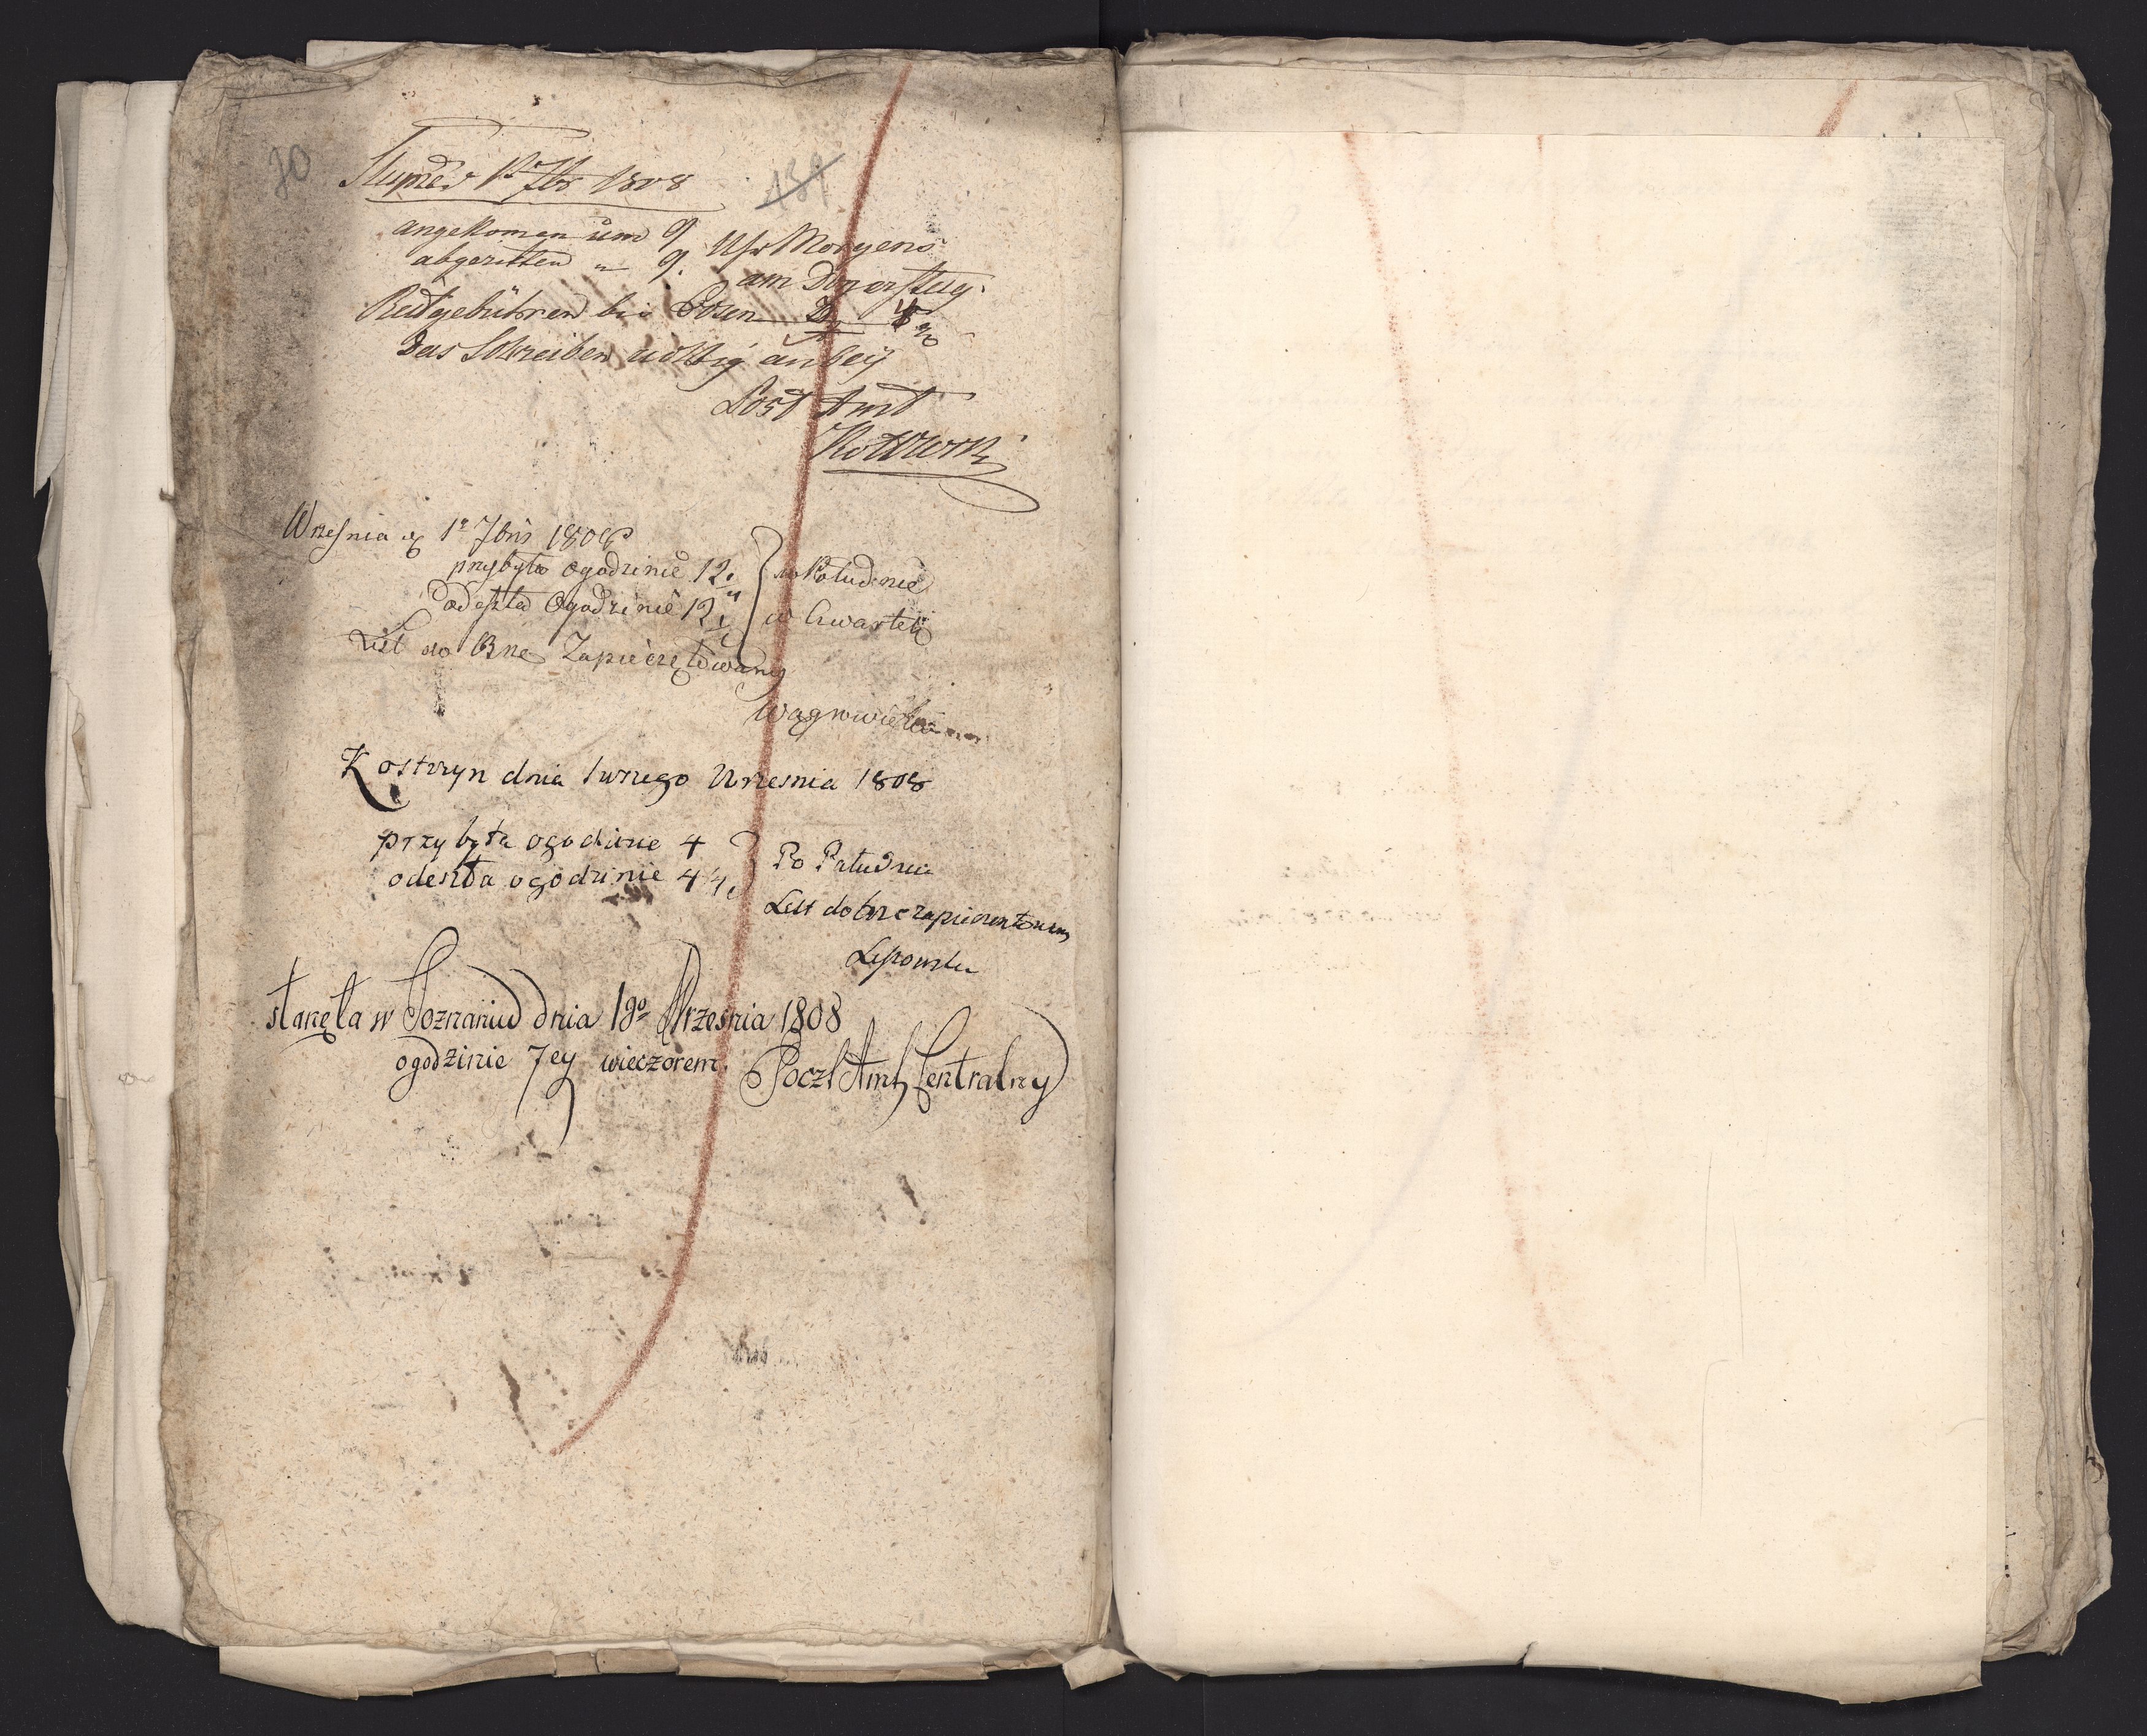 70
139
Slupce d 1t 7br 1808
angekomen um 9
abgeritten " 9. Uhr Morgens
am Donerstag.
Reitgebühren bis Posen
Das Schreiben richtig anbeÿ
Post Amt
Wrzesnia d 1o 7bris 1808
przybyła ogodzinie 12. w Południe
odeszła Ogodzinie 12 w Czwartek
List do Brze Zapieczętowany
Kostrzyn dnia 1wszego Wrzesnia 1808
przybyła ogodzinie 4 Po Południu
odeszła ogodzinie 4 1/4
List dobrze zapieczentowany
stanęła w Poznaniu dnia 1go Września 1808
ogodzinie 7ey wieczorem.
Poczt Amt Centralny